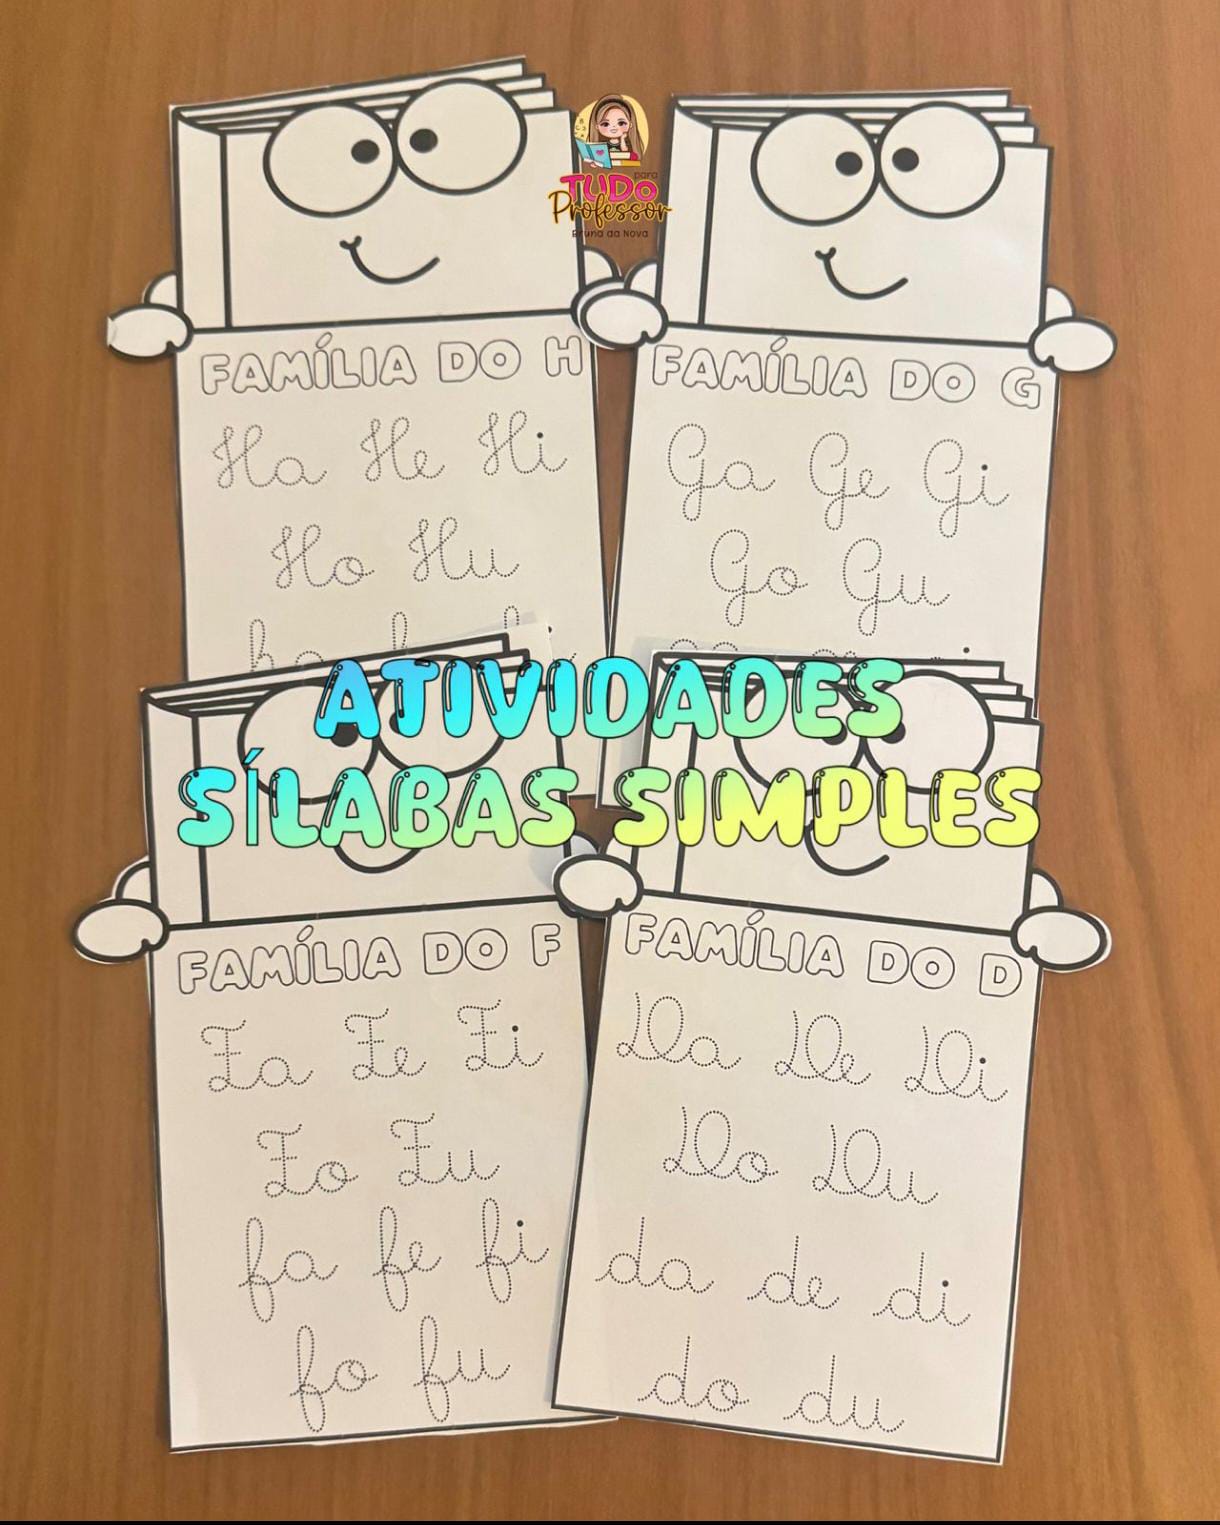 para
TUDO
Professor
Bruna da Nova
FAMÍLIA DO H
Ha He Hi
Ho Hu
FAMÍLIA DO G
Ga Ge Gi
Go Gu
ATIVIDADES
SÍLABAS SIMPLES
FAMÍLIA DO F
Fa Fe Fi
Fo Fu
fa fe fi
fo fu
FAMÍLIA DO D
Da De Di
Do Du
da de di
do du